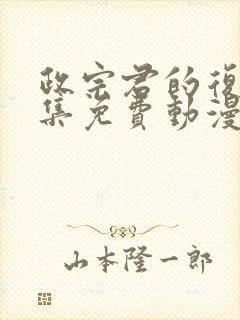 政宗君的復
集免費動漫
山本隆一郎